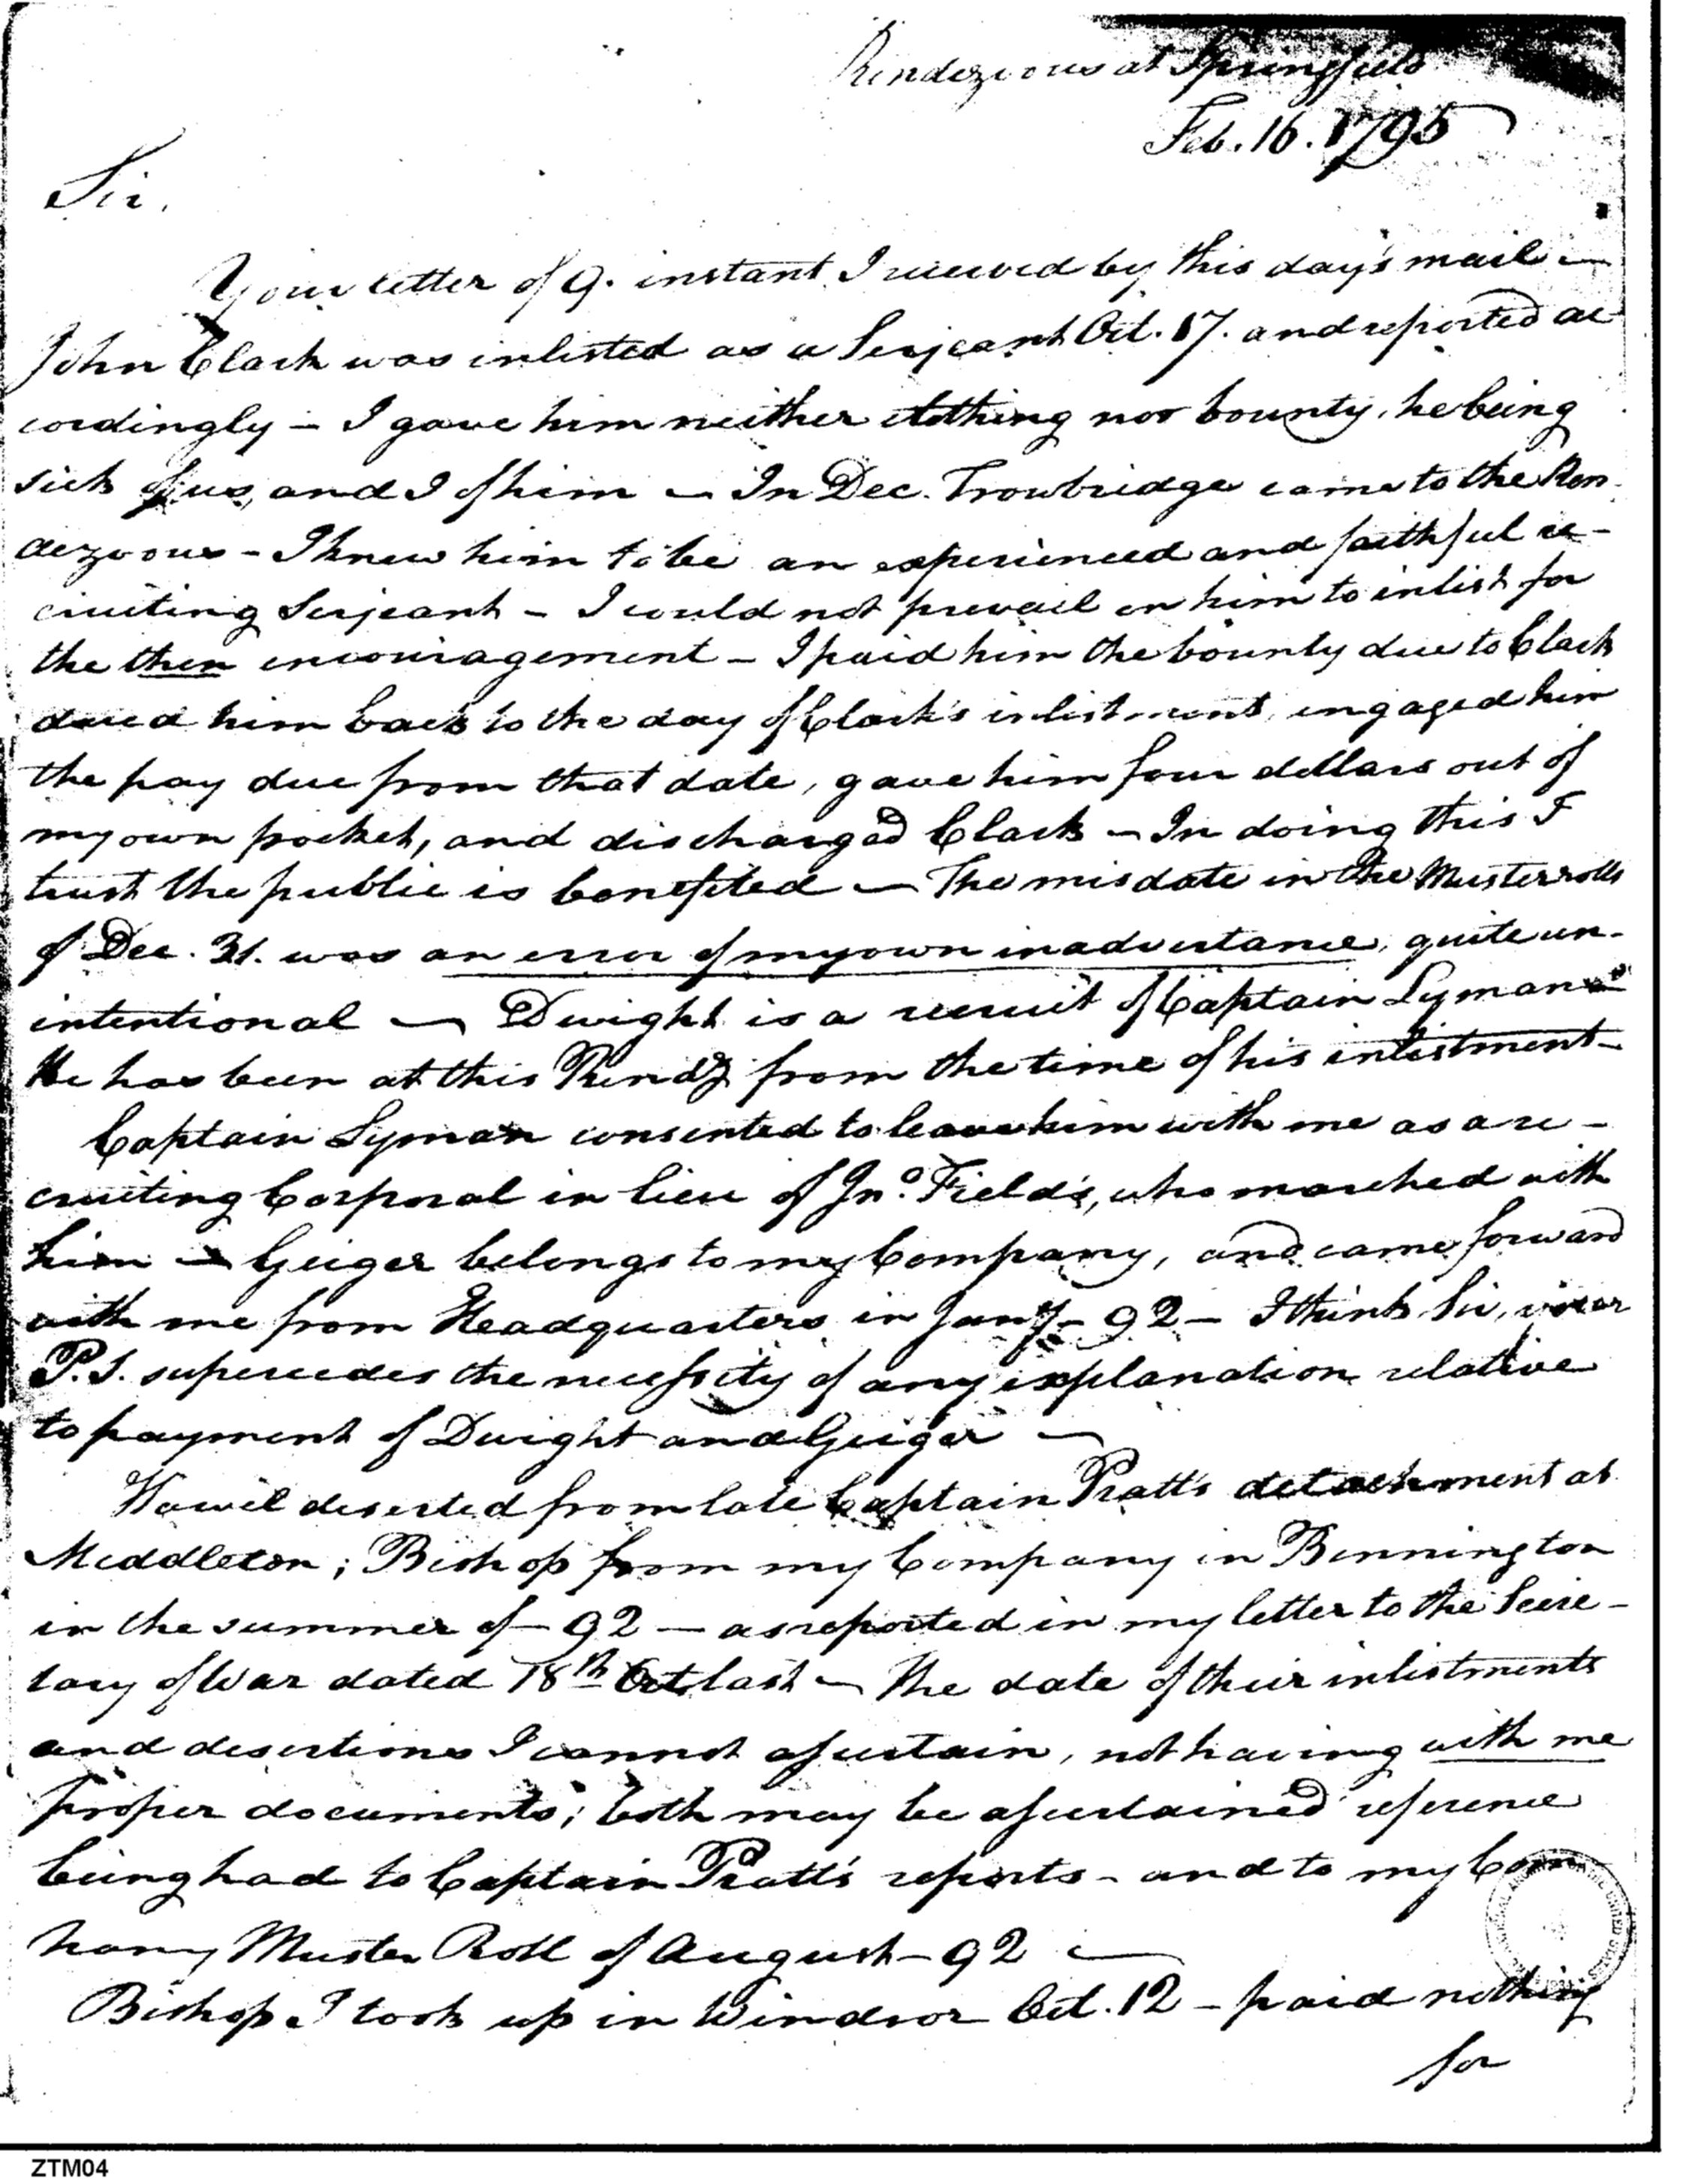 Rendezvous at Springfield
Feb. 16. 1795
Sir,
Your letter of 9. instant I received by this day's mail —
John Clark was inlisted as a Serjeant Oct. 17. and reported ac
cordingly – I gave him neither clothing nor bounty, he being
sick of us, and I of him — In Dec. Trowbridge came to the Ren
dezvous – I knew him to be an experienced and faithful re-
cruiting Serjeant – I could not prevail on him to inlist for
the then encouragement – I paid him the bounty due to Clark
dated him back to the day of Clark's inlistment, engaged him
the pay due from that date, gave him four dollars out of
my own pocket, and discharged Clark – In doing this I
trust the public is benefited — The misdate in the Muster rolls
of Dec. 31. was an error of my own inadvertance, quite un-
intentional — Dwight is a recruit of Captain Lyman's
He has been at this Rendz from the time of his inlistment –
Captain Lyman consented to leave him with me as a re-
cruiting Corporal in lieu of Jno. Field's, who marched with
him – Geiger belongs to my Company, and came forward
with me from Headquarters in Jany – 92 – I think Sir, your
P.S. supercedes the necessity of any explanation relative
to payment of Dwight and Geiger —
Howel deserted from late Captain Pratt's detachment at
Middleton; Bishop from my Company in Bennington
in the summer of – 92 — as reported in my letter to the Secre-
tary of War dated 18th Oct. last — The date of their inlistments
and desertions I cannot assertain, not having with me
proper documents; both may be assertained reference
being had to Captain Pratt's reports – and to my Com
pany Muster Roll of August – 92 —
Bishop I took up in Windsor Oct. 12 – paid nothing
for
ZTM04